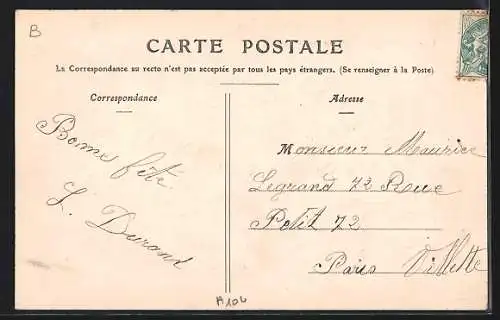 B
CARTE POSTALE
La Correspondance au recto n'est pas acceptée par tous les pays étrangers. (Se renseigner à la Poste)
Correspondance
Adresse
Bonne fête
L. Durand
Monsieur Maurice
Legrand 72 Roue
Petit 72
Paris Villette
A106